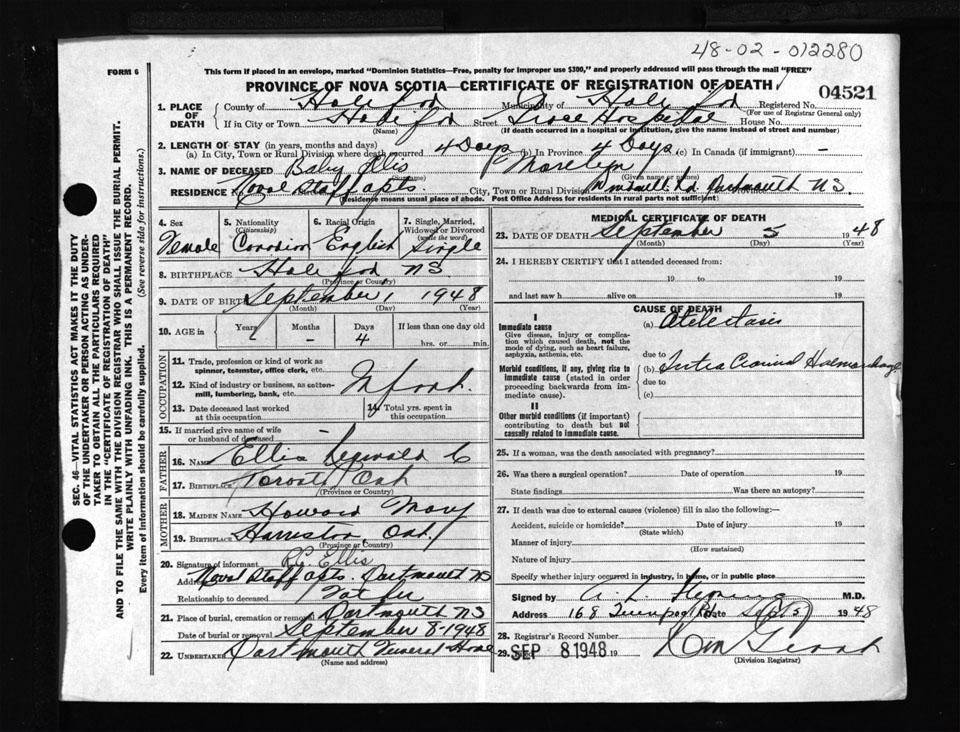 48-02-012280
FORM 6
This form if placed in an envelope, marked "Dominion Statistics—Free, penalty for improper use $300," and properly addressed will pass through the mail "FREE"
PROVINCE OF NOVA SCOTIA—CERTIFICATE OF REGISTRATION OF DEATH
04521
1. PLACE OF DEATH
County of Halifax Municipality of Halifax Registered No.
(For use of Registrar General only)
If in City or Town Halifax Street Grace Hospital House No.
(Name) (If death occurred in a hospital or institution, give the name instead of street and number)
2. LENGTH OF STAY (in years, months and days)
(a) In City, Town or Rural Division where death occurred 4 Days (b) In Province 4 Days (c) In Canada (if immigrant) —
3. NAME OF DECEASED Baby Ellis Marilyn
(Surname) (Given name or names)
RESIDENCE Naval Staff apts. City, Town or Rural Division Windmill Rd. Dartmouth NS.
(Residence means usual place of abode. Post Office Address for residents in rural parts not sufficient)
4. Sex
Female
5. Nationality
(Citizenship)
Canadian
6. Racial Origin
English
7. Single, Married, Widowed or Divorced
(write the word)
Single
8. BIRTHPLACE Halifax NS
(Province or Country)
9. DATE OF BIRTH September 1 1948
(Month) (Day) (Year)
10. AGE in
Years Months Days If less than one day old
- - 4 hrs. or min.
OCCUPATION
11. Trade, profession or kind of work as spinner, teamster, office clerk, etc.
12. Kind of industry or business, as cotton-mill, lumbering, bank, etc.
Infant.
13. Date deceased last worked at this occupation
14. Total yrs. spent in this occupation
15. If married give name of wife or husband of deceased —
FATHER
16. NAME Ellis C
17. BIRTHPLACE Toronto Ont
(Province or Country)
MOTHER
18. MAIDEN NAME Howard Mary
19. BIRTHPLACE Harriston Ont.
(Province or Country)
20. Signature of informant R.C. Ellis
Address Naval Staff apts. Dartmouth NS
Relationship to deceased Father
21. Place of burial, cremation or removal Dartmouth NS
Date of burial or removal September 8-1948
22. UNDERTAKER Dartmouth Funeral Home
(Name and address)
MEDICAL CERTIFICATE OF DEATH
23. DATE OF DEATH September 5 1948
(Month) (Day) (Year)
24. I HEREBY CERTIFY that I attended deceased from:
19 to 19
and last saw h alive on 19
CAUSE OF DEATH
I
Immediate cause
Give disease, injury or complication which caused death, not the mode of dying, such as heart failure, asphyxia, asthenia, etc.
(a) Atelectasis
due to
Morbid conditions, if any, giving rise to immediate cause (stated in order proceeding backwards from immediate cause).
(b) Intra Cranial Haemorrhage
due to
(c)
II
Other morbid conditions (if important) contributing to death but not causally related to immediate cause.
25. If a woman, was the death associated with pregnancy?
26. Was there a surgical operation? Date of operation 19
State findings Was there an autopsy?
27. If death was due to external causes (violence) fill in also the following:—
Accident, suicide or homicide? Date of injury 19
(State which)
Manner of injury
(How sustained)
Nature of injury
Specify whether injury occurred in industry, in home, or in public place
Signed by A. L. M.D.
Address 168 Date Sept 5 1948
28. Registrar's Record Number
29. Filed SEP 8 1948 19
(Division Registrar)
SEC. 46—VITAL STATISTICS ACT MAKES IT THE DUTY
OF THE UNDERTAKER OR PERSON ACTING AS UNDER-
TAKER TO OBTAIN ALL THE PARTICULARS REQUIRED
IN THE "CERTIFICATE OF REGISTRATION OF DEATH"
AND TO FILE THE SAME WITH THE DIVISION REGISTRAR WHO SHALL ISSUE THE BURIAL PERMIT.
WRITE PLAINLY WITH UNFADING INK. THIS IS A PERMANENT RECORD.
Every item of information should be carefully supplied. (See reverse side for instructions.)